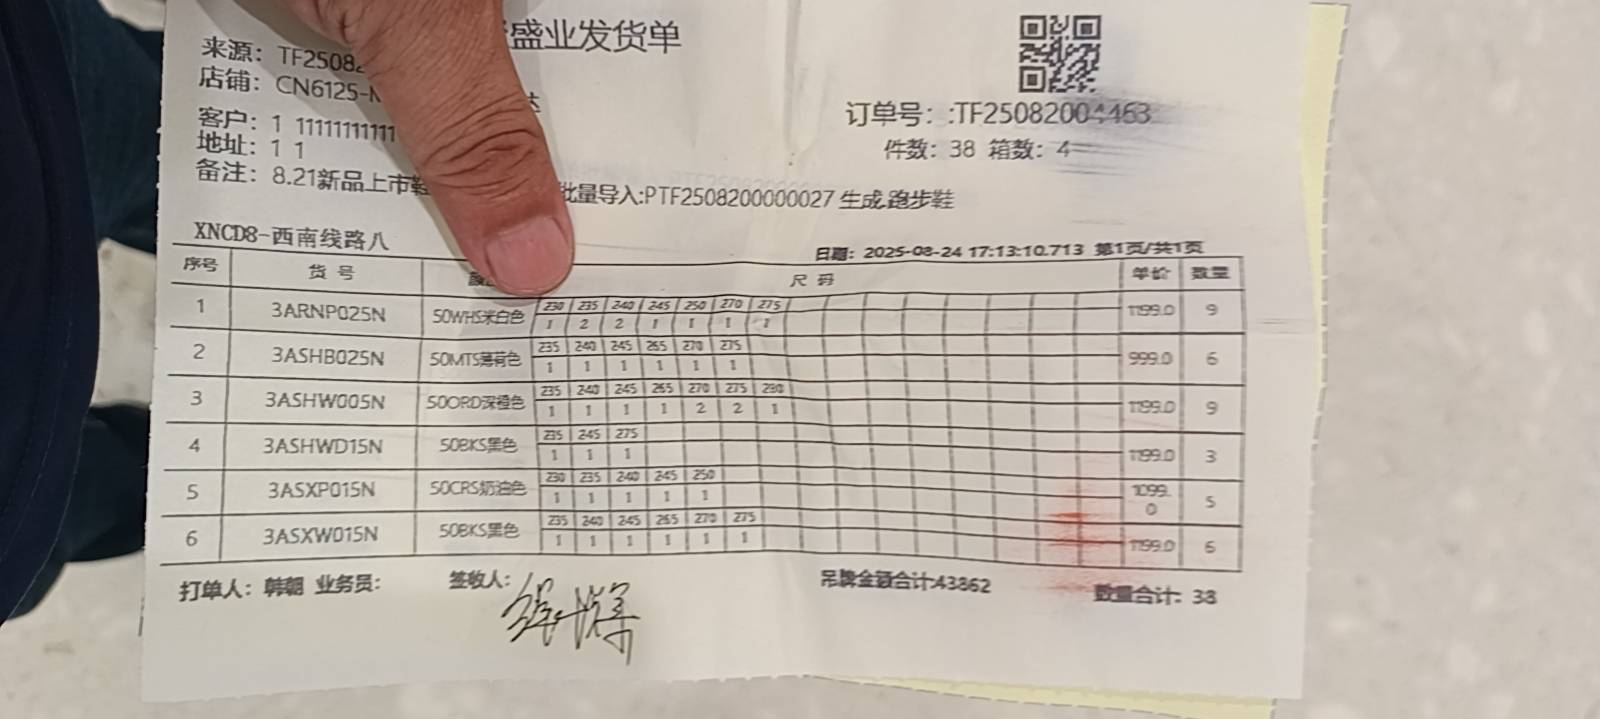 盛业发货单
来源：TF2508
店铺：CN6125-
订单号：:TF25082004463
客户：1 11111111111
件数：38 箱数：4
地址：1 1
备注：8.21新品上市鞋 批量导入:PTF2508200000027 生成,跑步鞋
XNCD8-西南线路八
日期：2025-08-24 17:13:10.713 第1页/共1页
序号 货号 尺码 单价 数量
230 235 240 245 250 270 275
1 3ARNP025N 50WHS米白色 1 2 2 1 1 1 1 1199.0 9
235 240 245 265 270 275
2 3ASHB025N 50MTS薄荷色 1 1 1 1 1 1 999.0 6
235 240 245 265 270 275 280
3 3ASHW005N 50ORD深橙色 1 1 1 1 2 2 1 1199.0 9
235 245 275
4 3ASHWD15N 50BKS黑色 1 1 1 1199.0 3
230 235 240 245 250
5 3ASXP015N 50CRS奶油色 1 1 1 1 1 1099.0 5
235 240 245 265 270 275
6 3ASXW015N 50BKS黑色 1 1 1 1 1 1 1199.0 6
打单人：韩朝 业务员： 签收人： 吊牌金额合计:43862 数量合计：38